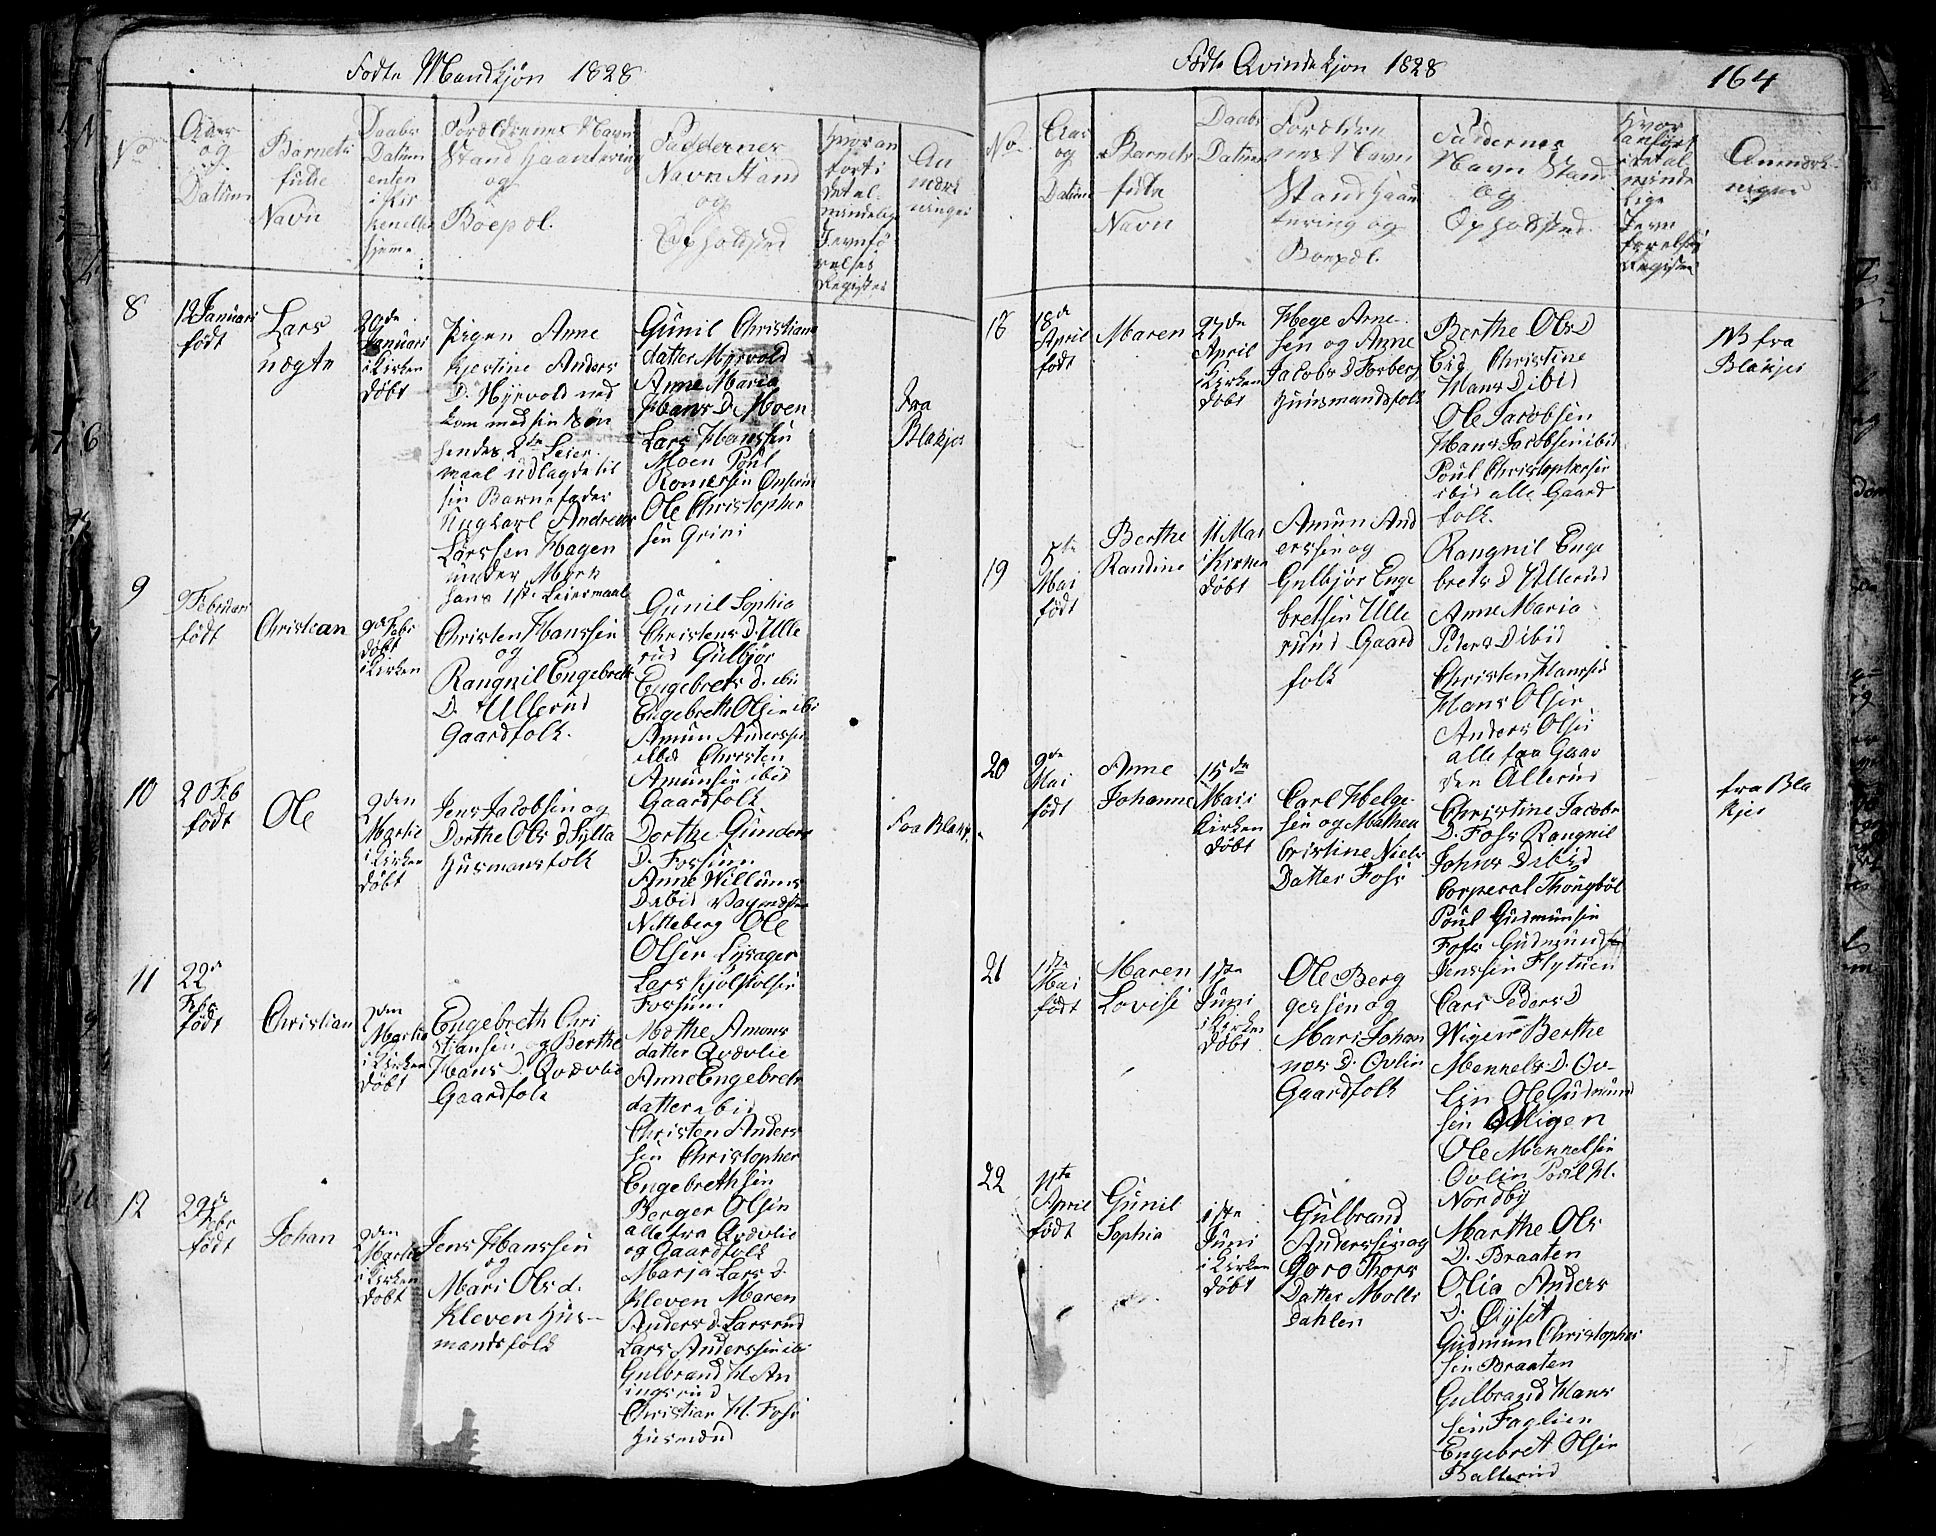 Fødte Mandkjøn 1828
No
Aar og Datum
Barnets fulde Navn
Daabs Datum enten i Kirken eller hjeme
Forældrenes Navn Stand Haantering og Boepæl.
Faddernes Navn Stand og Opholdsted
Hvor anfort i det almindelig Jevnførelses Register
Anmærkninger
8
12 Januari
født
Lars
uægte
20de
Januari
i Kirken
døbt
Pigen Anne
Kjerstine Anders
D. Myrvold ned
kom med sin Søn
hendes 2de Leier
maal udlagde til
sin Barnefader
Ungkarl Andreas
Larssen Hagen
under Mork
hans 1ste Leiermaal
Gunil Christians
datter Myrvold
Anne Maria
Hans D. Moen
Lars Hanssen
Moen Poul
Romersen
Ole Christopher
sen Grini
fra
Blakjer
9
9 Februari
født
Christian
Febr
døbt
i Kirken
Christen Hanssen
og
Rangnil Engebrets
D. Ullerud
Gaardfolk.
Gunil Sophia
Christens D. Ulle
rud Gulbjør
Engebrets D. ibi
Engebreth Olsen ibi
Amun Anderssen
ibid Christen
Amunsen ibid
Gaardfolk
10
20 Feb
født
Ole
2den
Martie
i Kirken
døbt
Jens Jacobsen og
Dorthe Ols D Sylta
Husmansfolk
Dorthe Gunders
D. Fossum
Anne Willums
D ibid
Nitteberg Ole
Olsen Lysager
Lars Kjolstolsen
Fossum
fra Blakjr
11
22d
Febr
født
Christian
2den
Martie
i Kirken
døbt
Engebreth Chri
stiansen og Berthe
Hans D. Qvævlie
Gaardfolk
Mathe Amons
datter Qvævlie
Anne Engebrets
datter ibid
Christen Anders
sen Christopher
Engebrethsen
Berger Olsen
alle fra Qvævlie
og Gaardfolk
12
29d
Febr
født
Johan
2den
Martie
i Kirken
døbt
Jens Hanssen
og
Mari Ols d.
Kleven Hus-
mandsfolk
Marja Lars d.
Kleven Maren
Anders d. Larsrud
Lars Anderssen ibi
Gulbrand H. An
ingsrud
Christian H. Foss
Husmænd
Fødte Qvindekjon 1828
164
No
Aar og Datum
Barnets fulde Navn
Daabs Datum
Forældrenes Navn Stand Haantering og Boepæl.
Faddernes Navn Stand og Opholdsted
Hvor anført i det almindelige Jevnførelses Register
Anmærkninger
18
18de
April
født
Maren
27de
April
i Kirken
døbt
Hege Arne-
sen og Anne
Jacobs D Forberg
Huusmandsfolk
Berthe Ols D
Eid Christine
Hans D ibid
Ole Jacobsen
Hans Jacobsen ibid
Poul Christophersen
ibid alle Gaard
folk.
NB fra
Blakjer
19
5te
Mai
født
Berthe
Randine
11 Mai
i Kirken
døbt
Amun And
erssen og
Gulbjør Enge
bretsen Ulle
rund Gaard
folk
Rangnil Enge
brets d Ullerud
Anne Maria
Peters D ibid
Christen Hanssen
Hans Olsen
Anders Olsen
alle fra Gaar
den Ullerud
20
9de
Mai
født
Anne
Johanne
15de
Maii
Kirken
døbt
Carl Helge
sen og Mathea
Cristine Niels
Datter Foss
Christine Jacobs
D. Foss Rangnil
Johns D ibid
Corperal Thongbøl
Poul Gudmunsen
Foss Gudmund
Jenssen Flytuen
fra Bla
kjer
21
1ste
Mai
født
Maren
Lovise
1ste
Juni
i Kirken
døbt
Ole Berg
gersen og
Mari Johan
nes D. Ovlin
Gaardfolk
Cari Peders D
Wigen Berthe
Mennels D. Ov-
lin Ole Gudmund
sen Wigen
Ole Mennelsen
Ovlin Poul H.
Nordby
22
11te
April
født
Gunil
Sophia
1ste
Juni
i Kirken
døbt
Gulbrand
Anderssen og
Goro Thors
Datter Molli
dahlen
Marthe Ols
D. Braaten
Olia Anders
D. Øyset
Gudmun Christopher
sen Braaten
Gulbrand Hans
sen Faglien
Engebret Olsen
Ballerud